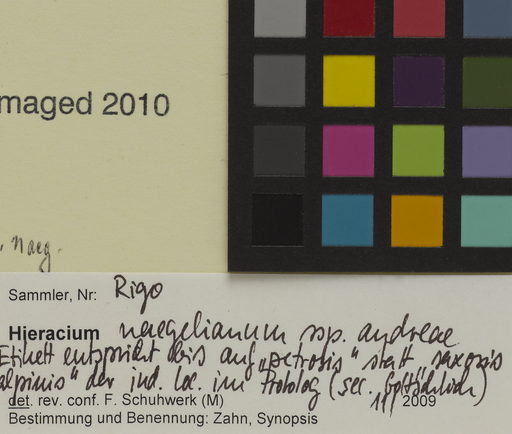 maged 2010
. Naeg.
Sammler, Nr: Rigo
Hieracium naegelianum ssp. andreae
Etikett entspricht bis auf "petrosis" statt saxosis
alpinis" der ind. loc. im Protolog (sec.
det. rev. conf. F. Schuhwerk (M) 11/2009
Bestimmung und Benennung: Zahn, Synopsis